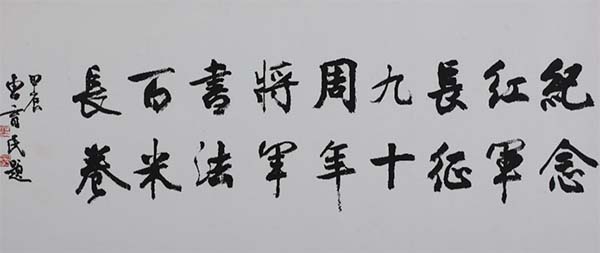 紀念
紅軍
長征
九十
周年
將軍
書法
百米
長卷
甲辰
育民題